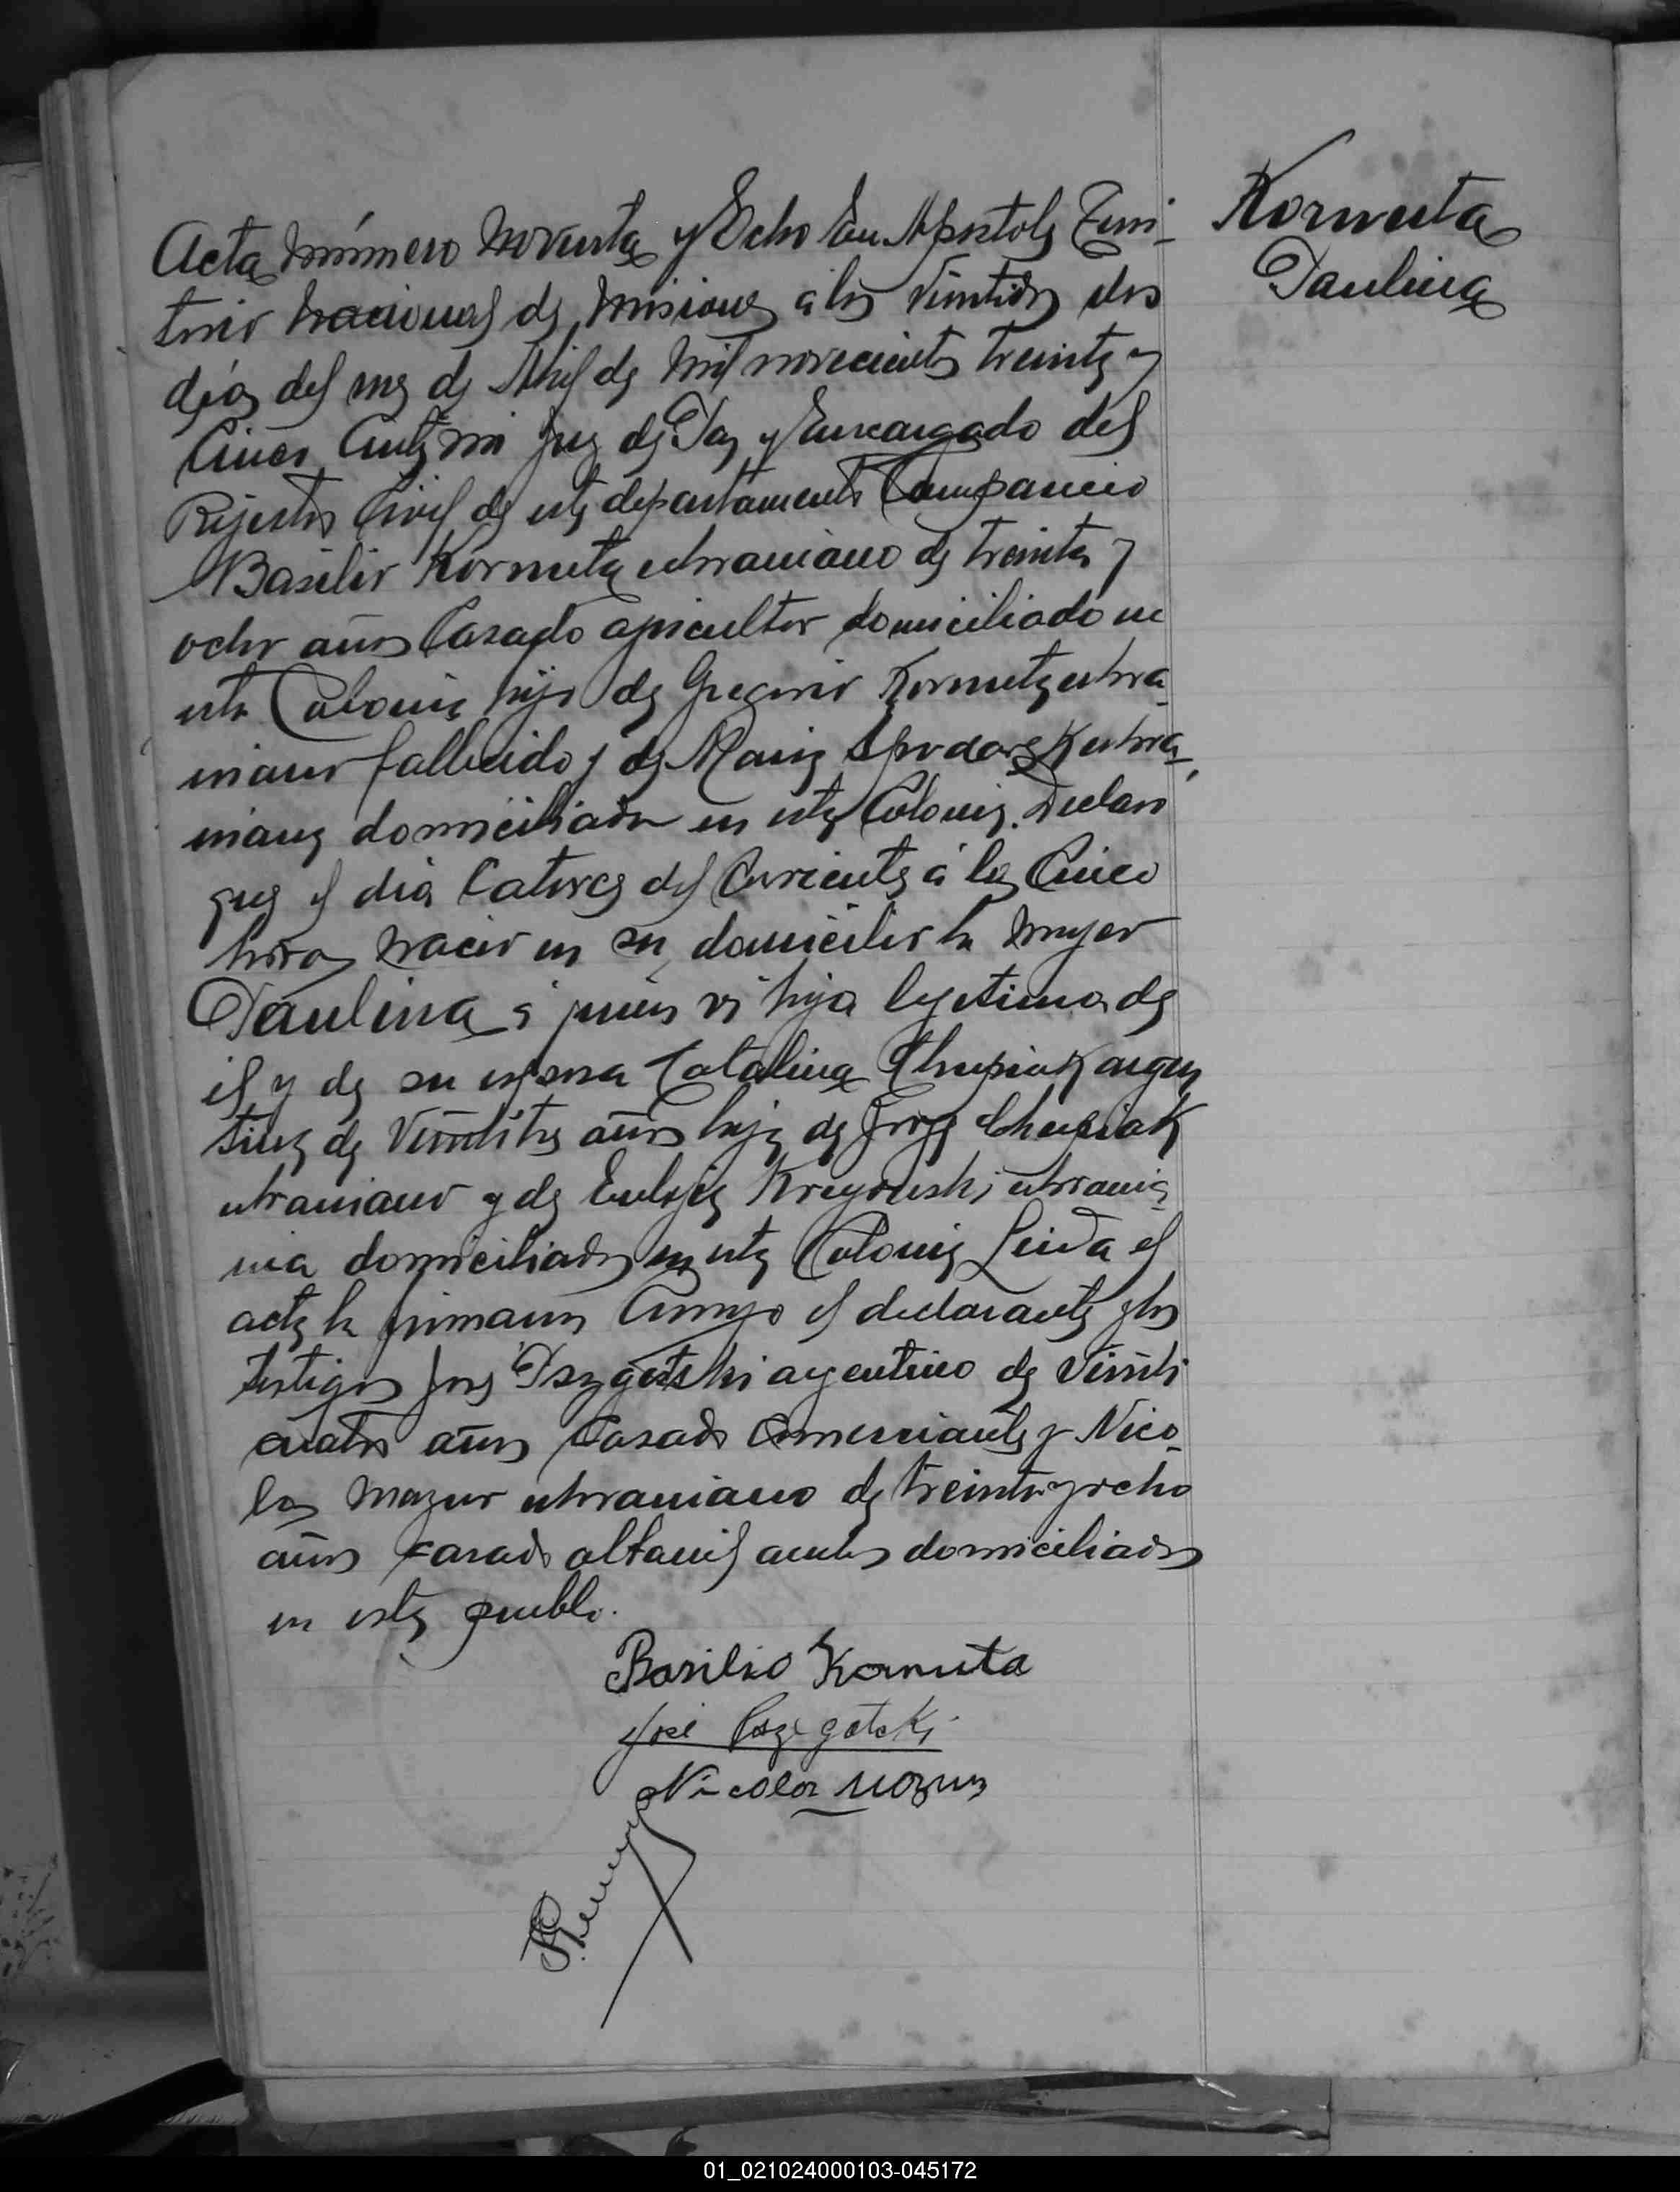 Kornuta
Paulina
Acta número noventa y Ocho En Apostoles Terri-
torio nacional de Misiones a los veintidos dos
días del mes de Abril de mil novecientos treinta y
Cinco Ante mi Juez de Paz y Encargado del
Rejistro Civil de este departamento Comparecio
Basilio Kornuta uhraniano de treinta y
ocho años Casado apicultor domiciliado en
esta Colonia hijo de Gregorio Kornuta uhra-
niano fallecido y de Maria uhra-
niana domiciliada en esta Colonia. Declaro
que el dia Catorce del Corriente á las Cinco
horas nacio en su domicilio la mujer
Paulina á quien vi hija lejetima de
el y de su esposa Catalina Chupiak argen
tina de veintitres años hija de Jorge Chupiak
uhraniano y de uhrania-
nia domiciliados en esta Colonia Leida el
acta la firmaron Conmigo el declarante y los
testigos José Pszygotski argentino de veinti
cuatro años Casado Comerciante y Nico-
las Mazur uhraniano de treinta y ocho
años casado albanil ambos domiciliados
en este pueblo.
Basilio Kornuta
José
Nicolas Mazur
01_021024000103-045172